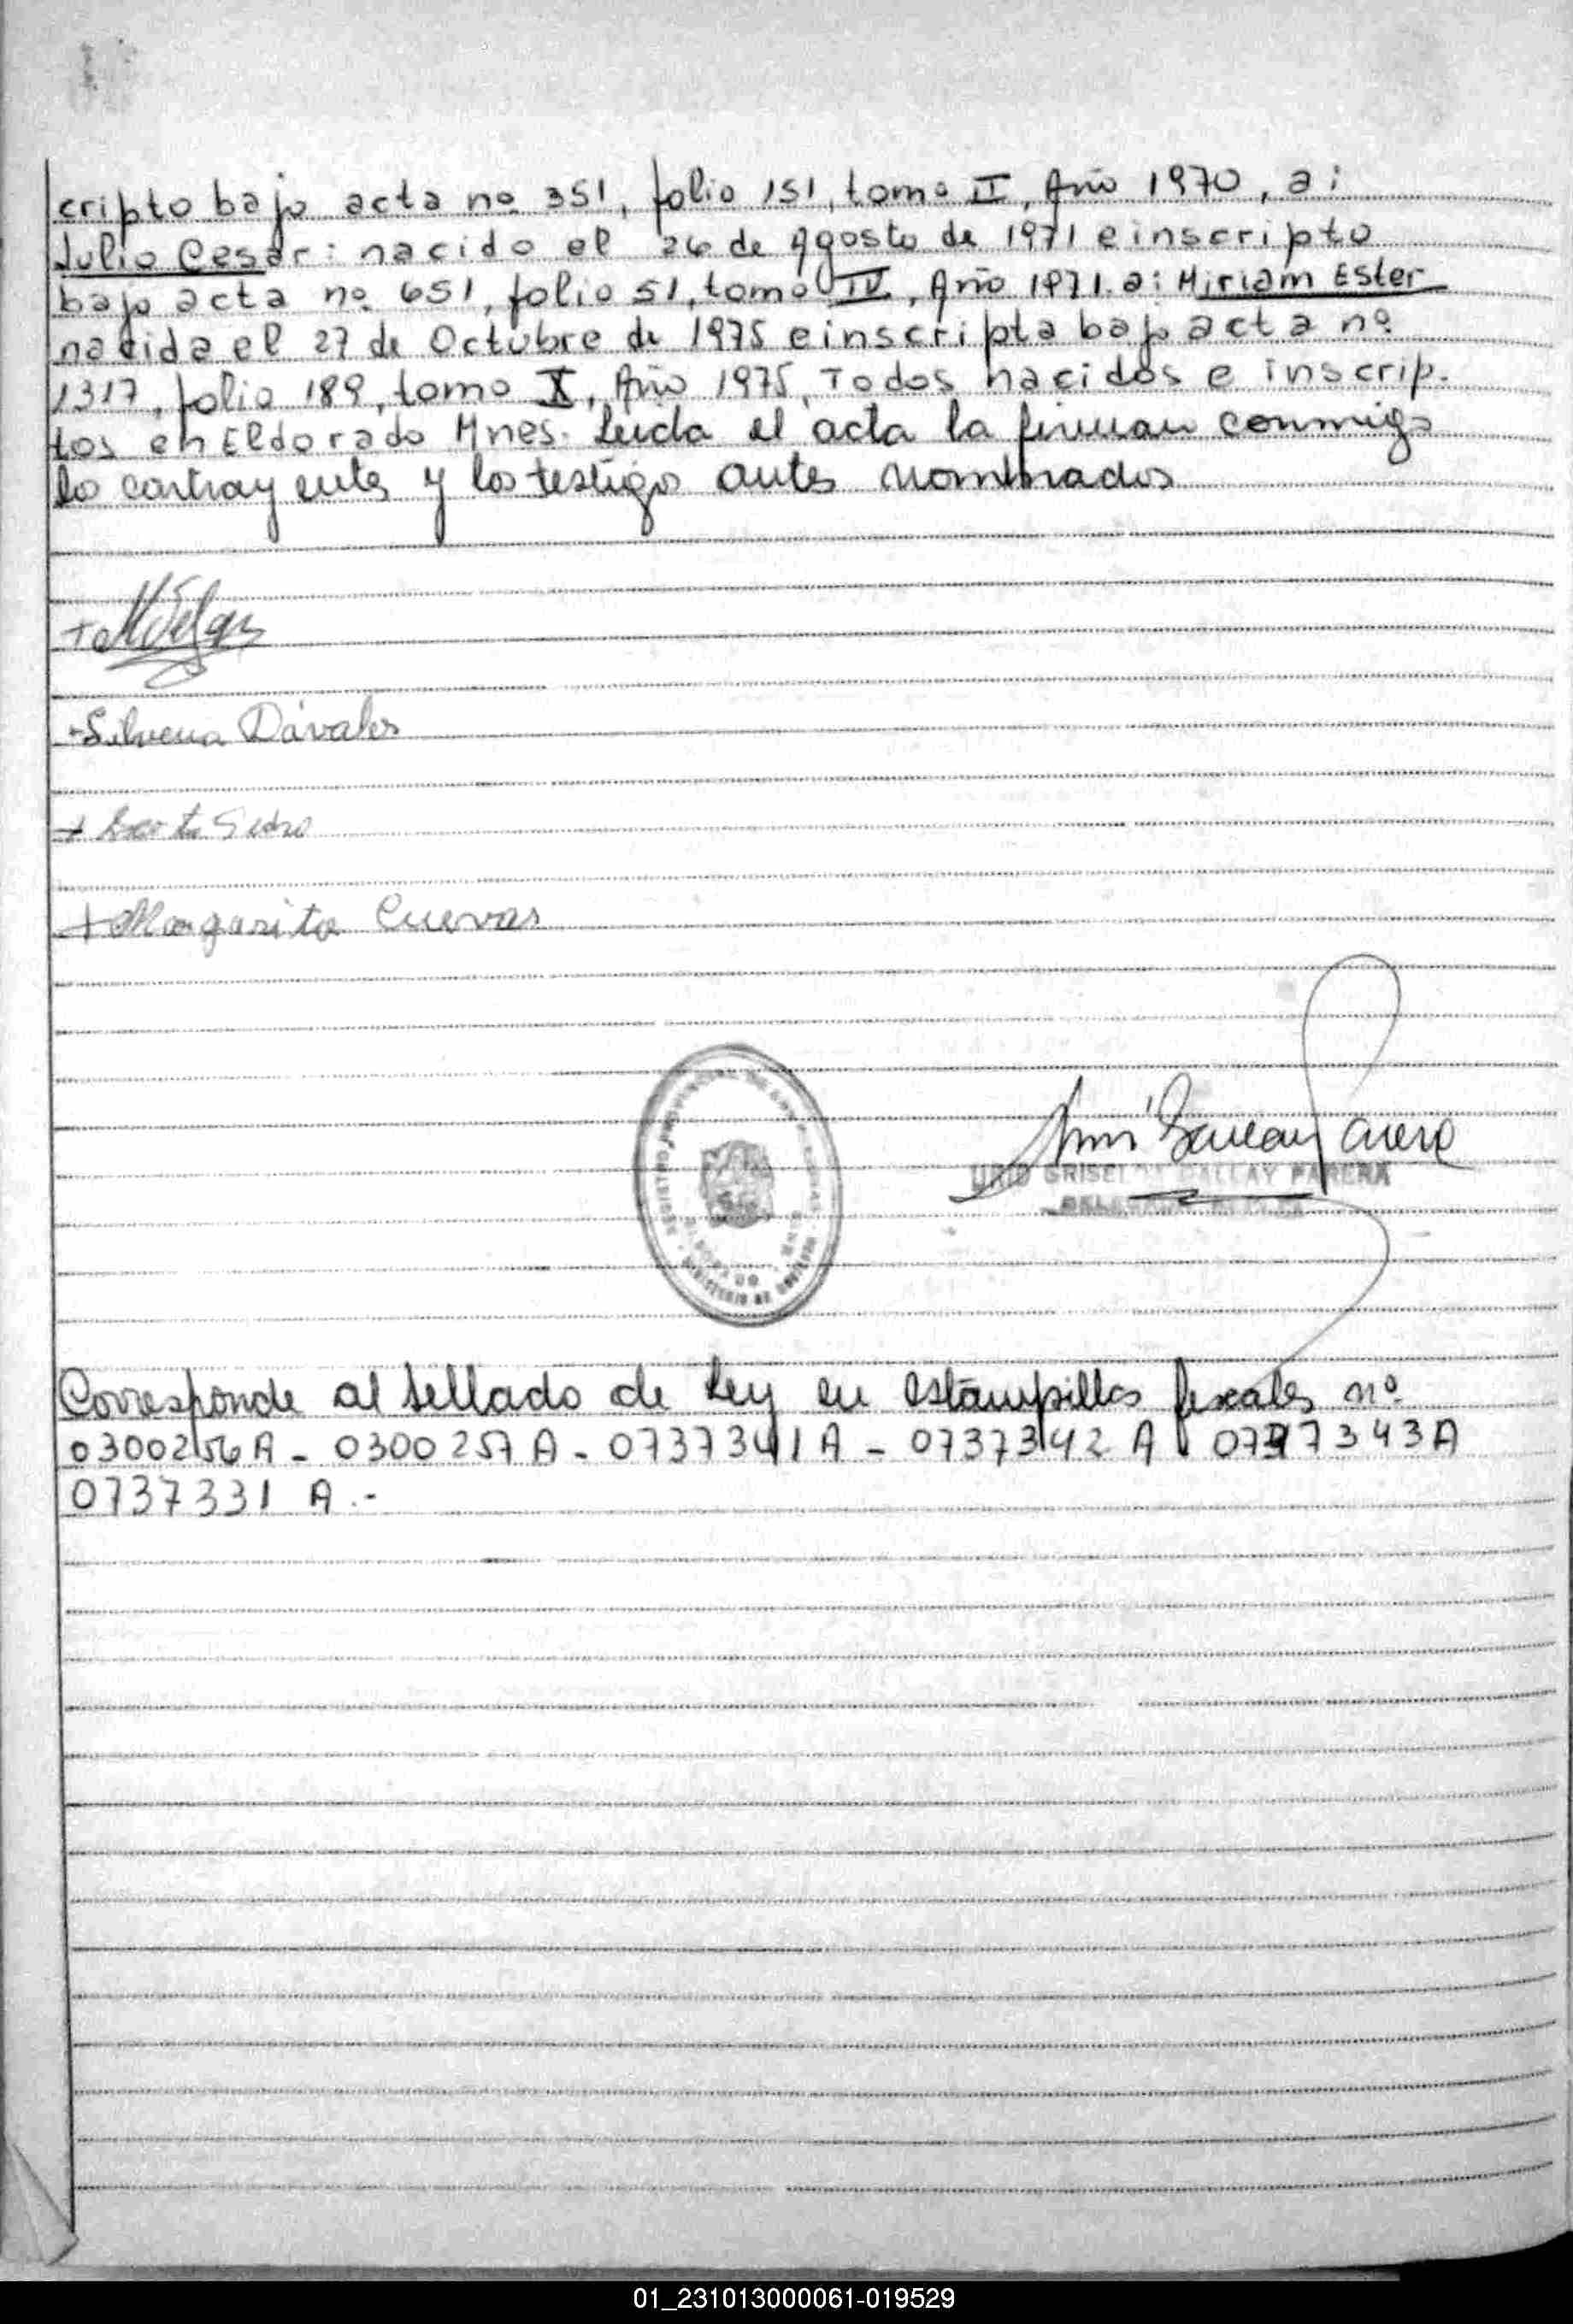 cripto bajo acta nº 351, folio 151, tomo II, Año 1970, a:
Julio Cesar: nacido el 26 de Agosto de 1971 e inscripto
bajo acta nº 651, folio 51, tomo IV, Año 1971. a: Miriam Ester
nacida el 27 de Octubre de 1975 e inscripta bajo acta nº
1317, folio 189, tomo X, Año 1975, Todos nacidos e inscrip.
tos en Eldorado Mnes. Leida el acta la firman conmigo
los contrayentes y los testigos antes nominados
Dávalos
+ Margarita Cuevas
GRISELDA DALLAY PARERA
Corresponde al sellado de Ley en estampillas fiscales nº
0300256A - 0300257A - 0737341A - 0737342 A 0737343A
0737331 A.-
01_231013000061-019529